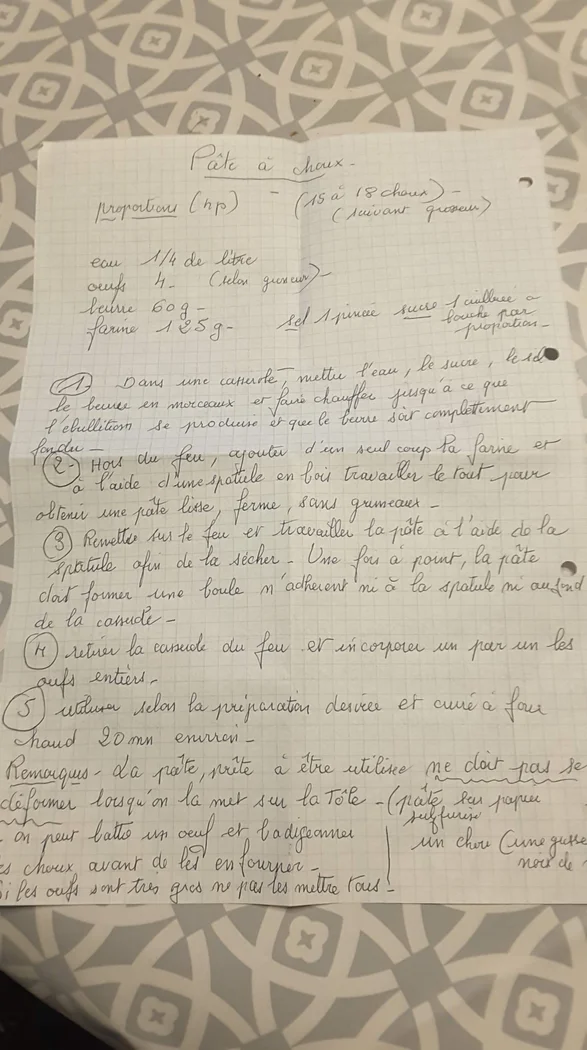 Pâte à choux -
proportions (hp) - (15 à 18 choux) -
(suivant grosseur)
eau 1/4 de litre
oeufs 4 - (selon grosseur) -
beurre 60g -
farine 125g - sel 1 pincée sucre 1 cuillère à
bouche par
proportion -
1 - Dans une casserole, mettre l'eau, le sucre, le sel
le beurre en morceaux et faire chauffer jusqu'à ce que
l'ébullition se produise et que le beurre soit complètement
fondu -
2 - Hors du feu, ajouter d'un seul coup la farine et
à l'aide d'une spatule en bois travailler le tout pour
obtenir une pâte lisse, ferme, sans grumeaux -
3 Remettre sur le feu et travailler la pâte à l'aide de la
spatule afin de la sécher - Une fois à point, la pâte
doit former une boule n'adhérent ni à la spatule ni au fond
de la casserole -
4 retirer la casserole du feu et incorporer un par un les
oeufs entiers -
5 utiliser selon la préparation désirée et cuire à four
chaud 20 mn environ -
Remarques - La pâte, prête à être utilisée ne doit pas se
déformer lorsqu'on la met sur la tôle - (pâte sur papier
sulfurisé
- on peut battre un oeuf et badigeonner
un chou (une
noix de
es choux avant de les enfourner -
Si les oeufs sont très gros ne pas les mettre tous -